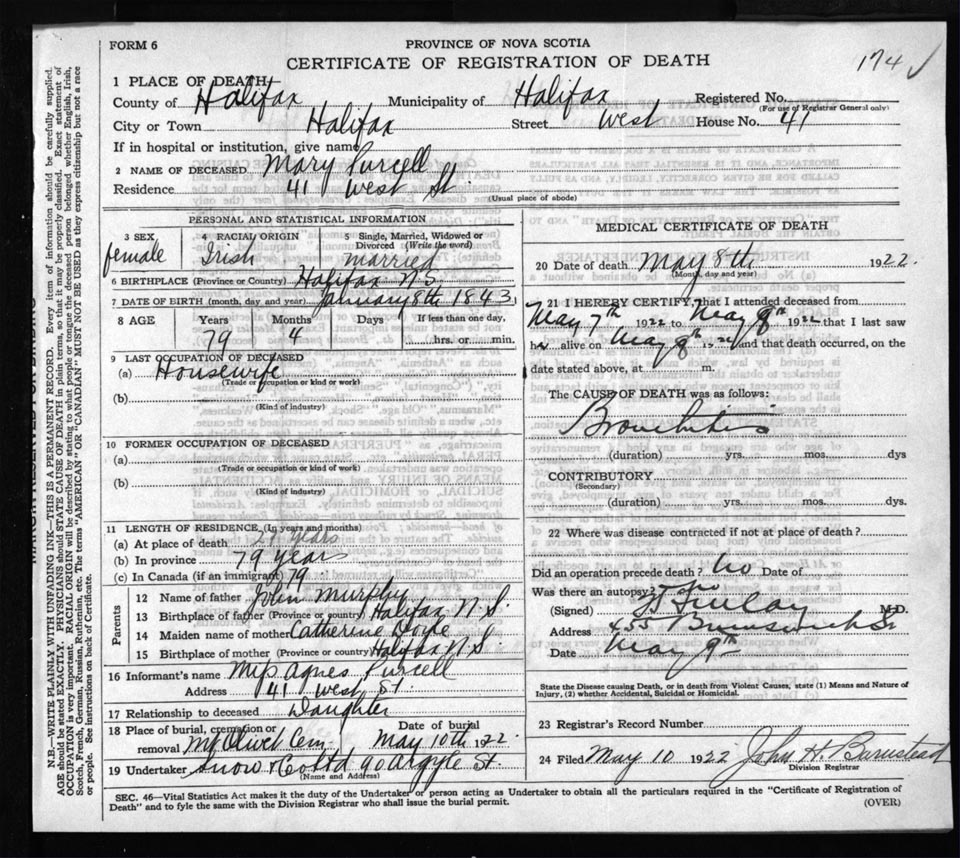 FORM 6
PROVINCE OF NOVA SCOTIA
CERTIFICATE OF REGISTRATION OF DEATH
174 ✓
1 PLACE OF DEATH
County of Halifax Municipality of Halifax Registered No.
(For use of Registrar General only)
City or Town Halifax Street West House No. 41
If in hospital or institution, give name
2 NAME OF DECEASED Mary Purcell
Residence 41 West St
(Usual place of abode)
PERSONAL AND STATISTICAL INFORMATION
3 SEX 4 RACIAL ORIGIN 5 Single, Married, Widowed or Divorced (Write the word)
female Irish married
6 BIRTHPLACE (Province or Country) Halifax N.S.
7 DATE OF BIRTH (month, day and year) January 8th 1843
8 AGE Years Months Days If less than one day,
79 4 hrs. or min.
9 LAST OCCUPATION OF DECEASED
(a) Housewife
(Trade or occupation or kind or work)
(b)
(Kind of industry)
10 FORMER OCCUPATION OF DECEASED
(a)
(Trade or occupation or kind of work)
(b)
(Kind of industry)
11 LENGTH OF RESIDENCE (In years and months)
(a) At place of death years
(b) In province 79 years
(c) In Canada (if an immigrant) 79
Parents
12 Name of father John Murphy
13 Birthplace of father (Province or country) Halifax N.S.
14 Maiden name of mother Catherine Doyle
15 Birthplace of mother (Province or country) Halifax N S
16 Informant's name Agnes Purcell
Address 41 West St.
17 Relationship to deceased Daughter
18 Place of burial, cremation or removal Mt Olivet Cem Date of burial May 10th 1922.
19 Undertaker Snow & Co Ltd 90 Argyle St
(Name and Address)
MEDICAL CERTIFICATE OF DEATH
20 Date of death May 8th 1922.
(Month, day and year)
21 I HEREBY CERTIFY, that I attended deceased from
May 7th 1922 to May 8th 1922 that I last saw
h alive on May 8th 1922 and that death occurred, on the
date stated above, at m.
The CAUSE OF DEATH was as follows:
Bronchitis
(duration) yrs. mos. dys
CONTRIBUTORY
(Secondary)
(duration) yrs. mos. dys.
22 Where was disease contracted if not at place of death?
Did an operation precede death? no Date of
Was there an autopsy? no
(Signed) Finlay M.D.
Address 455 Brunswick St
Date May 9th
State the Disease causing Death, or in death from Violent Causes, state (1) Means and Nature of
Injury, (2) whether Accidental, Suicidal or Homicidal.
23 Registrar's Record Number
24 Filed May 10 1922 John H Barnstead
Division Registrar
SEC. 46—Vital Statistics Act makes it the duty of the Undertaker or person acting as Undertaker to obtain all the particulars required in the "Certificate of Registration of
Death" and to fyle the same with the Division Registrar who shall issue the burial permit.
(OVER)
MARGIN RESERVED FOR BINDING
N.B.—WRITE PLAINLY WITH UNFADING INK—THIS IS A PERMANENT RECORD. Every item of information should be carefully supplied.
AGE should be stated EXACTLY. PHYSICIANS should STATE CAUSE OF DEATH in plain terms, so that it may be properly classified. Exact statement of
OCCUPATION is very important. RACIAL ORIGIN will be described by stating to what people or tongue the deceased person belonged, whether English, Irish,
Scotch, French, German, Russian, Ruthenian, etc. The terms "AMERICAN" OR "CANADIAN" MUST NOT BE USED as they express citizenship but not a race
or people. See instructions on back of Certificate.